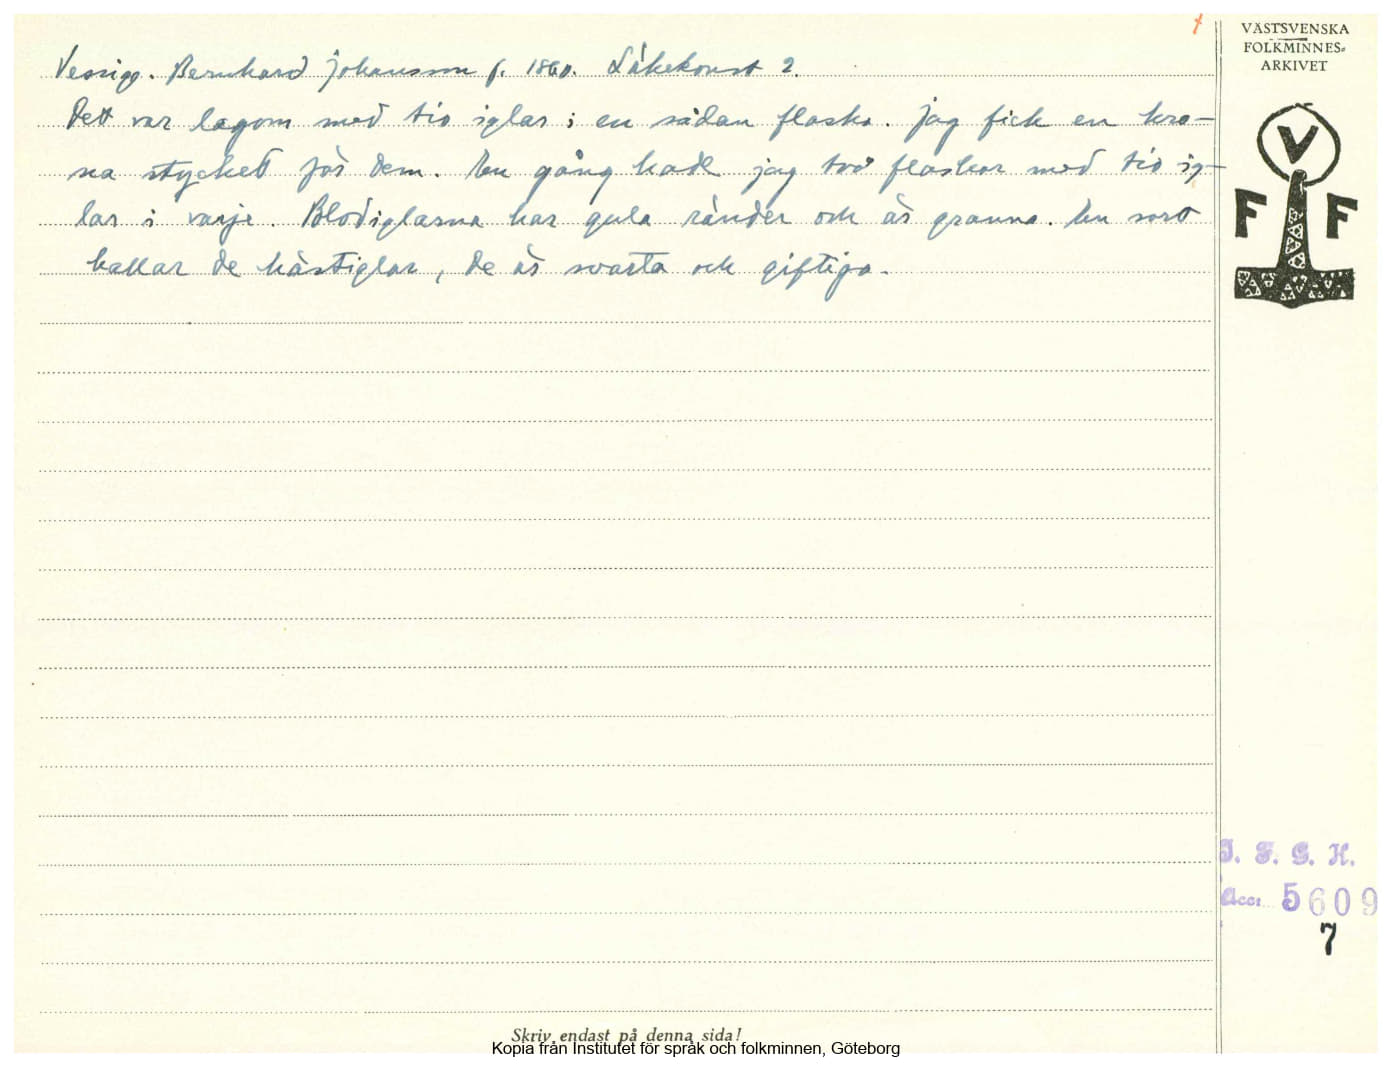 VÄSTSVENSKA
FOLKMINNES=
ARKIVET
V
F F
Vessige. Bernhard Johansson f. 1860. Läkekonst 2.
Det var lagom med tio iglar i en sådan flaska. Jag fick en kro-
na stycket för dem. En gång hade jag två flaskor med tio ig-
lar i varje. Blodiglarna har gula ränder och är granna. En sort
kallar de hästiglar, de är svarta och giftiga.
I. F. G. H.
Acc. 5609
7
Skriv endast på denna sida!
Kopia från Institutet för språk och folkminnen, Göteborg